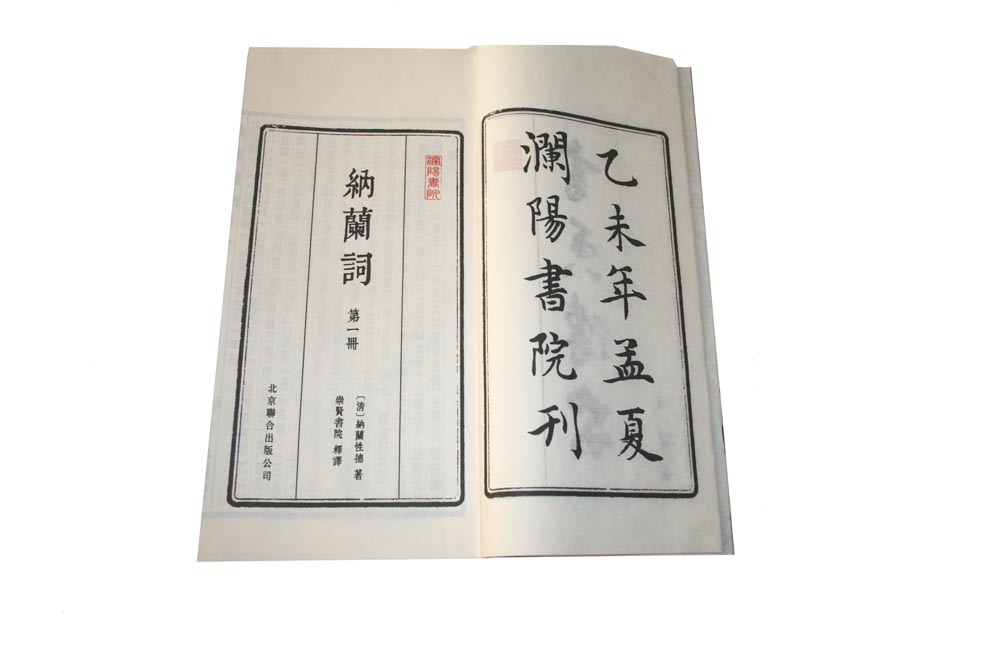 乙未年孟夏
瀾陽書院刊
瀾陽書院
納蘭詞 第一冊
〔清〕納蘭性德 著
崇賢書院 釋譯
北京聯合出版公司